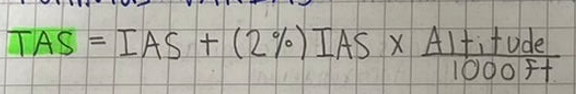 TAS = IAS + (2%) IAS x Altitude
1000 Ft